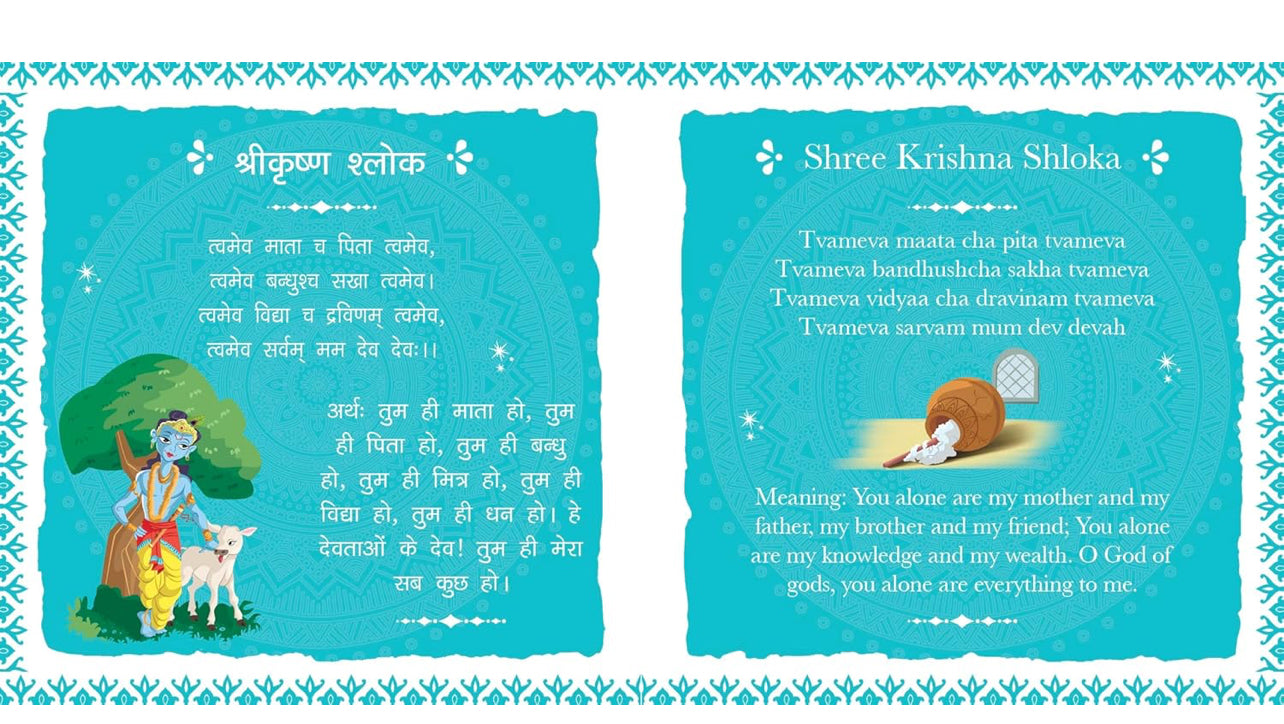 श्रीकृष्ण श्लोक
त्वमेव माता च पिता त्वमेव,
त्वमेव बन्धुश्च सखा त्वमेव।
त्वमेव विद्या च द्रविणम् त्वमेव,
त्वमेव सर्वम् मम देव देवः।।
अर्थः तुम ही माता हो, तुम
ही पिता हो, तुम ही बन्धु
हो, तुम ही मित्र हो, तुम ही
विद्या हो, तुम ही धन हो। हे
देवताओं के देव! तुम ही मेरा
सब कुछ हो।
Shree Krishna Shloka
Tvameva maata cha pita tvameva
Tvameva bandhushcha sakha tvameva
Tvameva vidyaa cha dravinam tvameva
Tvameva sarvam mum dev devah
Meaning: You alone are my mother and my
father, my brother and my friend; You alone
are my knowledge and my wealth. O God of
gods, you alone are everything to me.